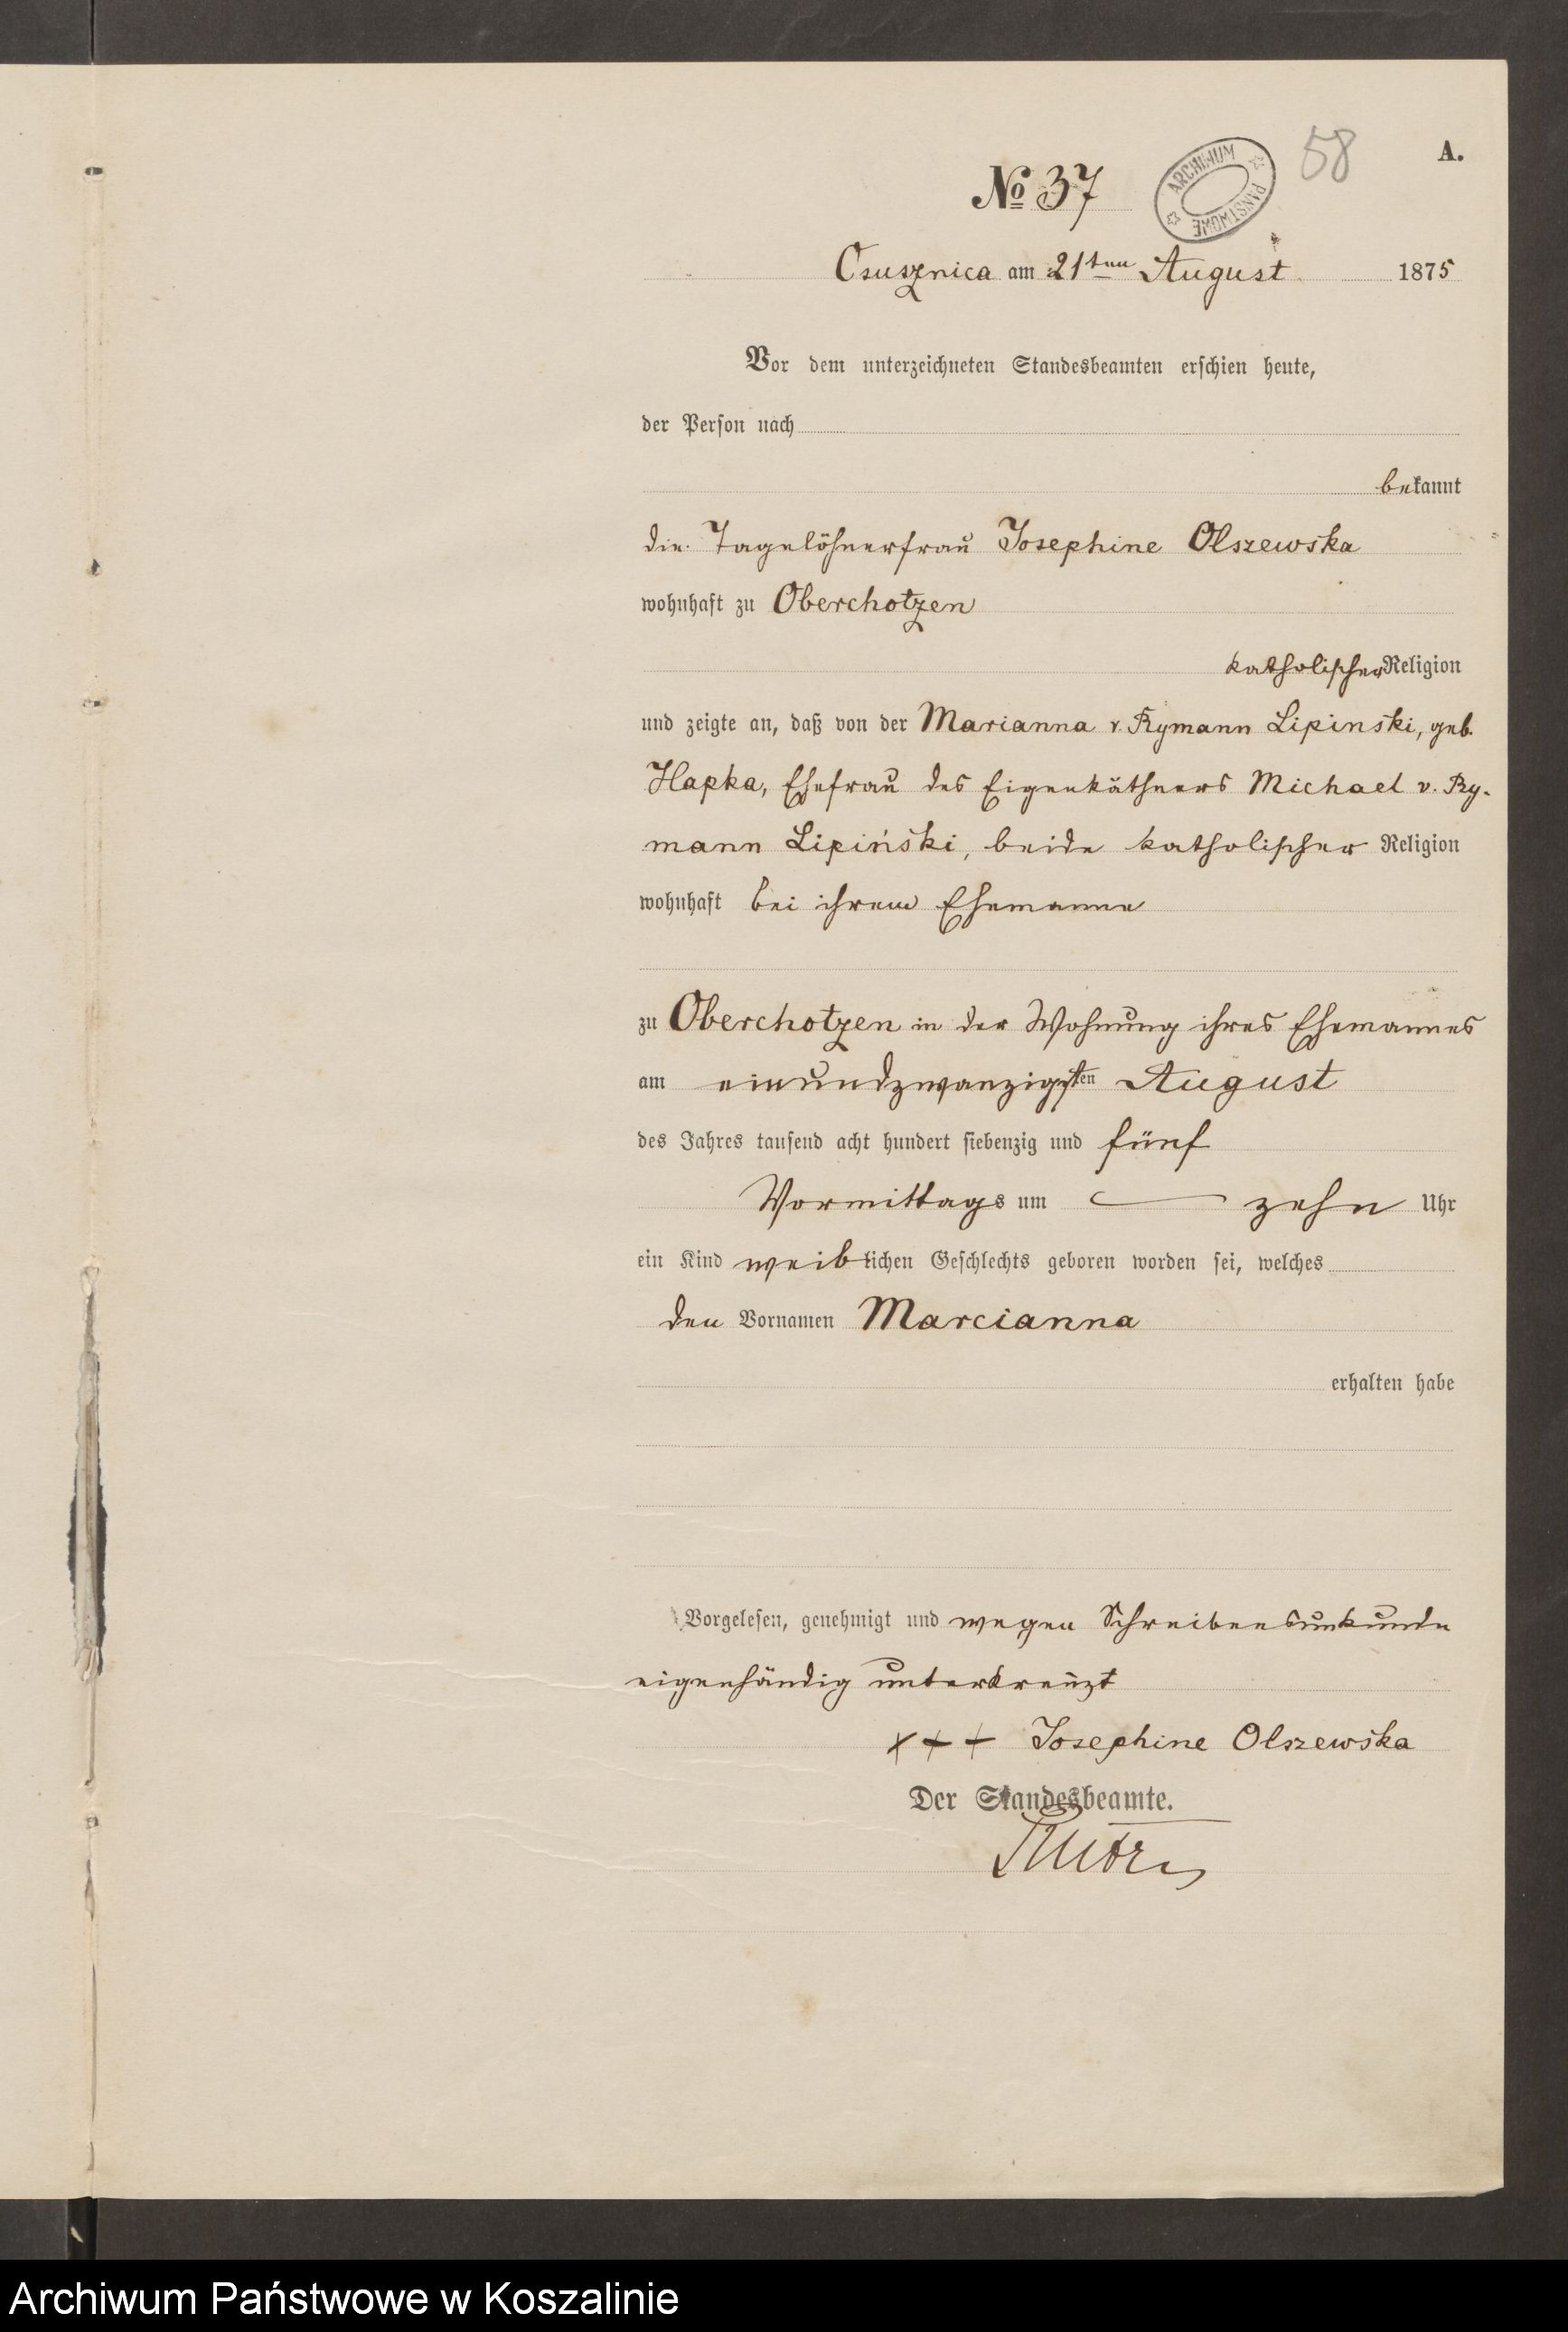 58
A.
№ 37
ARCHIWUM PAŃSTWOWE
Csusznica am 21ten August 1875
Vor dem unterzeichneten Standesbeamten erschien heute,
der Person nach
bekannt
die Tagelöhnerfrau Josephine Olszewska
wohnhaft zu Oberchotzen
katholischer Religion
und zeigte an, daß von der Marianna v. Rymann Lipinski, geb.
Hapka, Ehefrau des Eigenkäthners Michael v. Ry-
mann Lipiński, beide katholischer Religion
wohnhaft bei ihrem Ehemanne
zu Oberchotzen in der Wohnung ihres Ehemannes
am einundzwanzigsten August
des Jahres tausend acht hundert siebenzig und fünf
Vormittags um zehn Uhr
ein Kind weiblichen Geschlechts geboren worden sei, welches
den Vornamen Marcianna
erhalten habe
Vorgelesen, genehmigt und wegen Schreibensunkunde
eigenhändig unterkreuzt
+++ Josephine Olszewska
Der Standesbeamte.
Archiwum Państwowe w Koszalinie